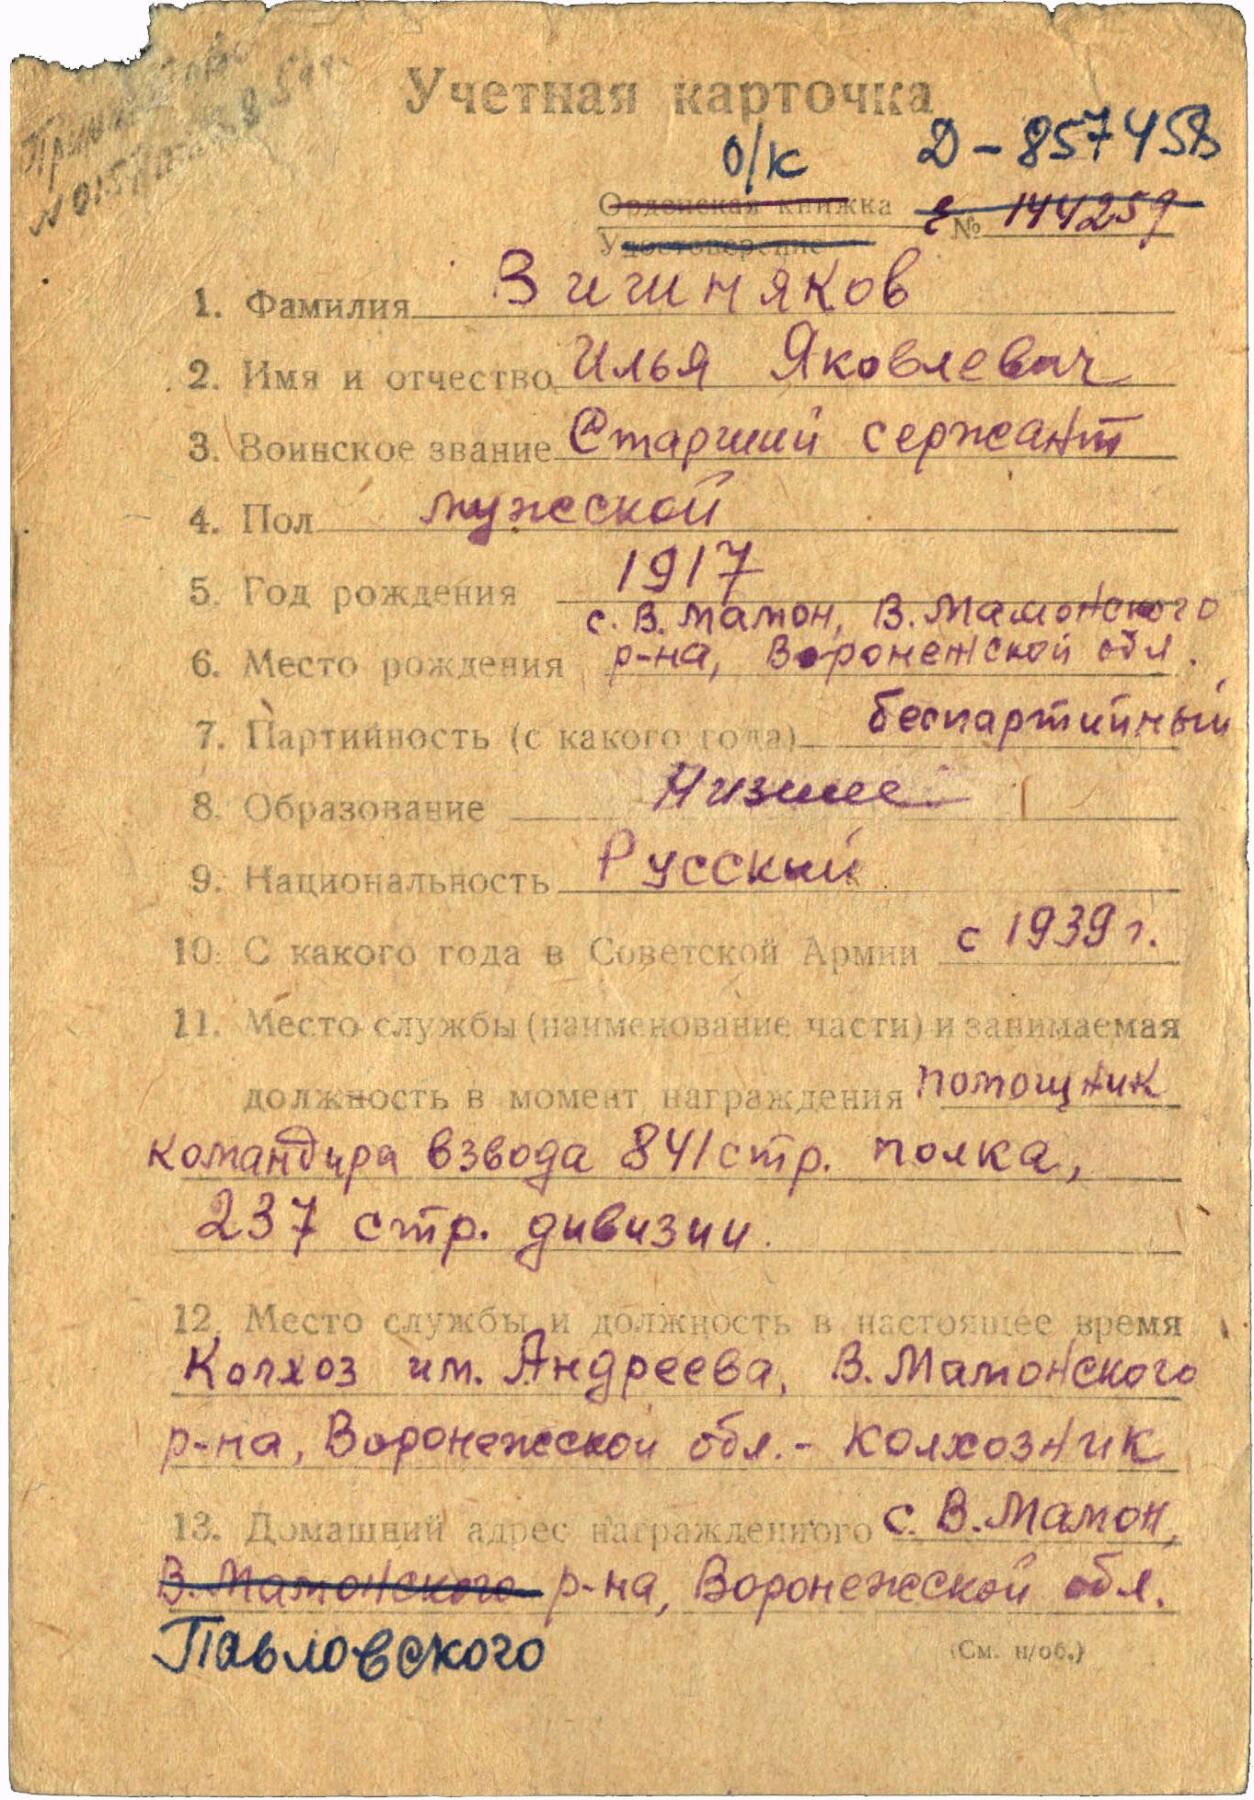 Учетная карточка
О/К Д-857458
Орденская книжка № 144259
Удостоверение
1. Фамилия Зигиняков
2. Имя и отчество Илья Яковлевич
3. Воинское звание Старший сержант
4. Пол мужской
5. Год рождения 1917
с. В. Мамон, В. Мамонского
6. Место рождения р-на, Воронежской обл.
7. Партийность (с какого года) беспартийный
8. Образование Низшее
9. Национальность Русский
10. С какого года в Советской Армии с 1939 г.
11. Место службы (наименование части) и занимаемая
должность в момент награждения помощник
командира взвода 841 стр. полка,
237 стр. дивизии.
12. Место службы и должность в настоящее время
Колхоз им. Андреева, В. Мамонского
р-на, Воронежской обл. - колхозник
13. Домашний адрес награжденного с. В. Мамон,
В. Мамонского р-на, Воронежской обл.
Павловского
(См. н/об.)